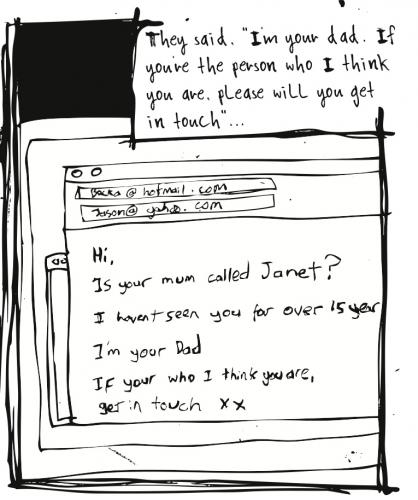 They said. "I'm your dad. If
you're the person who I think
you are. please will you get
in touch"...
Becka@hotmail.com
Jason@yahoo.com
Hi,
Is your mum called Janet?
I havent seen you for over 15 year
I'm your Dad
If your who I think you are,
get in touch xx